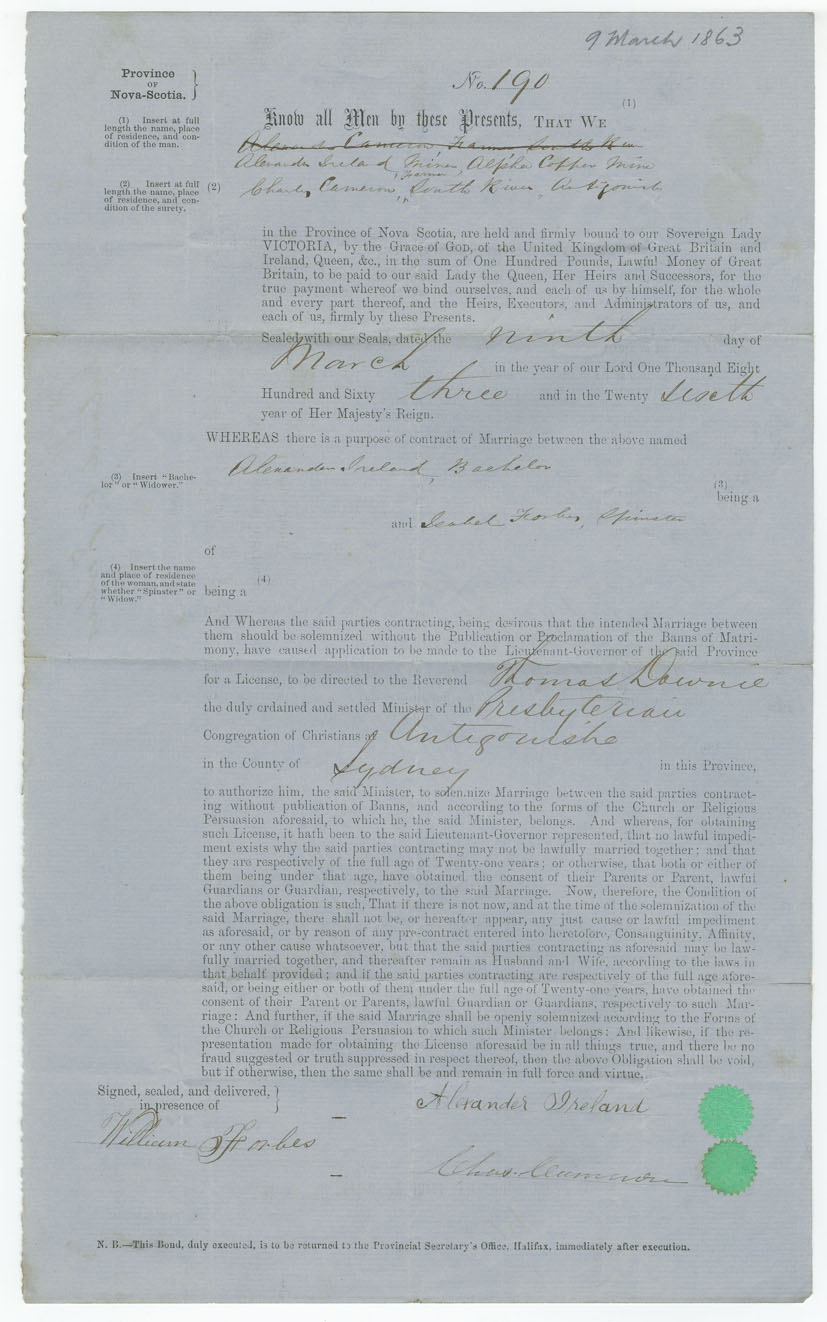 9 March 1863
Province
OF
Nova-Scotia.
No. 190
(1) Insert at full
length the name, place
of residence, and con-
dition of the man.
(1)
Know all Men by these Presents, THAT WE
Alexander Cameron, Farmer, South River
Alexander Ireland Miner, Alpha Copper Mine
(2) Insert at full
length the name, place
of residence, and con-
dition of the surety.
Farmer
(2) Charles Cameron, South River, Antigonish
in the Province of Nova Scotia, are held and firmly bound to our Sovereign Lady
VICTORIA, by the Grace of GOD, of the United Kingdom of Great Britain and
Ireland, Queen, &c., in the sum of One Hundred Pounds, Lawful Money of Great
Britain, to be paid to our said Lady the Queen, Her Heirs and Successors, for the
true payment whereof we bind ourselves, and each of us by himself, for the whole
and every part thereof, and the Heirs, Executors, and Administrators of us, and
each of us, firmly by these Presents.
Sealed with our Seals, dated the ninth day of
March in the year of our Lord One Thousand Eight
Hundred and Sixty three and in the Twenty sixth
year of Her Majesty's Reign.
WHEREAS there is a purpose of contract of Marriage between the above named
Alexander Ireland, Bachelor
(3) Insert "Bache-
lor" or "Widower."
(3)
being a
and Isabel Forbes, Spinster
of
(4) Insert the name
and place of residence
of the woman, and state
whether "Spinster" or
"Widow."
(4)
being a
And Whereas the said parties contracting, being desirous that the intended Marriage between
them should be solemnized without the Publication or Proclamation of the Banns of Matri-
mony, have caused application to be made to the Lieutenant-Governor of the said Province
for a License, to be directed to the Reverend Thomas Downie
the duly ordained and settled Minister of the Presbyterian
Congregation of Christians at Antigonishe
in the County of Sydney in this Province,
to authorize him, the said Minister, to solemnize Marriage between the said parties contract-
ing without publication of Banns, and according to the forms of the Church or Religious
Persuasion aforesaid, to which he, the said Minister, belongs. And whereas, for obtaining
such License, it hath been to the said Lieutenant-Governor represented, that no lawful impedi-
ment exists why the said parties contracting may not be lawfully married together; and that
they are respectively of the full age of Twenty-one years; or otherwise, that both or either of
them being under that age, have obtained the consent of their Parents or Parent, lawful
Guardians or Guardian, respectively, to the said Marriage. Now, therefore, the Condition of
the above obligation is such, That if there is not now, and at the time of the solemnization of the
said Marriage, there shall not be, or hereafter appear, any just cause or lawful impediment
as aforesaid, or by reason of any pre-contract entered into heretofore, Consanguinity, Affinity,
or any other cause whatsoever, but that the said parties contracting as aforesaid may be law-
fully married together, and thereafter remain as Husband and Wife, according to the laws in
that behalf provided; and if the said parties contracting are respectively of the full age afore-
said, or being either or both of them under the full age of Twenty-one years, have obtained the
consent of their Parent or Parents, lawful Guardian or Guardians, respectively to such Mar-
riage: And further, if the said Marriage shall be openly solemnized according to the Forms of
the Church or Religious Persuasion to which such Minister belongs: And likewise, if the re-
presentation made for obtaining the License aforesaid be in all things true, and there be no
fraud suggested or truth suppressed in respect thereof, then the above Obligation shall be void,
but if otherwise, then the same shall be and remain in full force and virtue.
Signed, sealed, and delivered,
in presence of
Alexander Ireland
William Forbes
Chas. Cameron
N. B.—This Bond, duly executed, is to be returned to the Provincial Secretary's Office, Halifax, immediately after execution.